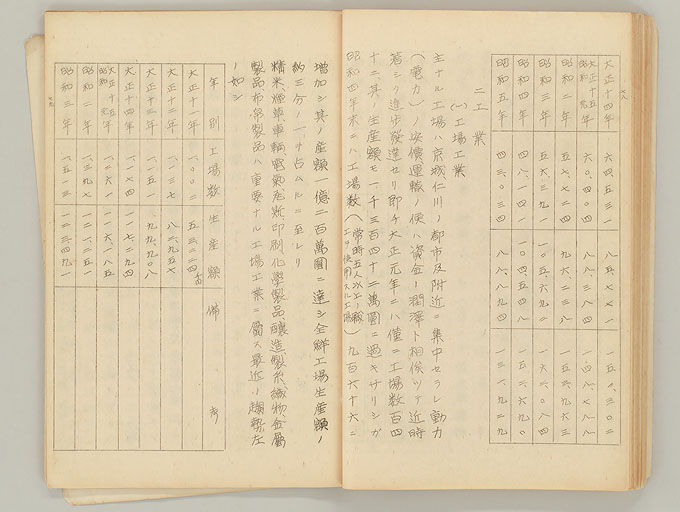 七八
大正十四年 六四、五三一 八五、七七一 一五〇、三〇二
大正十五年 昭和元年 六〇、四〇四 八八、三八四 一四八、七八八
昭和二年 五七、七二四 九六、二三八 一五三、九六二
昭和三年 五六、三九一 一〇五、六九〇 一六二、〇八一
昭和四年 四八、一四一 一〇四、五四九 一五二、六九〇
昭和五年 四三、〇三四 八八、八九四 一三一、九二八
二工業
(一)工場工業
主ナル工場ハ京城仁川ノ都市及附近ニ集中セラレ動力
(電力)ノ安價運輸ノ便ハ資金ノ潤澤ト相俟ツテ近時
著シク進步發達セリ即チ大正元年ニハ僅ニ工場数百四
十二、其ノ生産額モ一千三百四十二萬圓ニ過ギザリシガ
昭和四年末ニハ工場数(常時五人以上ノ職工ヲ使用スル工場)九百六十六ニ
増加シ其ノ産額一億二百萬圓ニ達シ全鮮工場生産額ノ
約三分ノ一ヲ占ムルニ至レリ
精米、煙草、車輌、電氣、瓦斯、印刷、化學製品、釀造、製糸、織物、金屬
製品、布帛製品ハ重要ナル工場工業ニ屬ス最近ノ趨勢左
ノ如シ
年別 工場数 生産額 備考
大正十一年 一、〇〇二
大正十二年 一、一三七 八二、九五七
大正十三年 一、一五一 九九、九〇八
大正十四年 一、一七四
大正十五年 昭和元年
昭和二年 一、三九七
昭和三年 一、五一三 一二三、四九一
七九